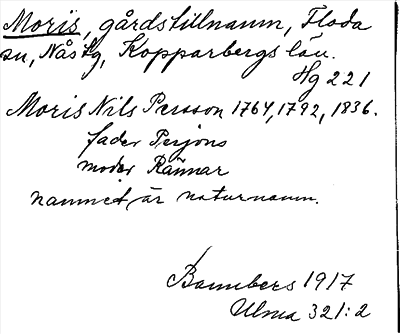 Moris, gårdstillnamn, Floda
sn, Nås tg, Kopparbergs län.
Hg 221
Moris Nils Persson 1764, 1792, 1836.
fader Perjons
moder Rännar
namnet är naturnamn.
Bannbers 1917
Ulma 321:2